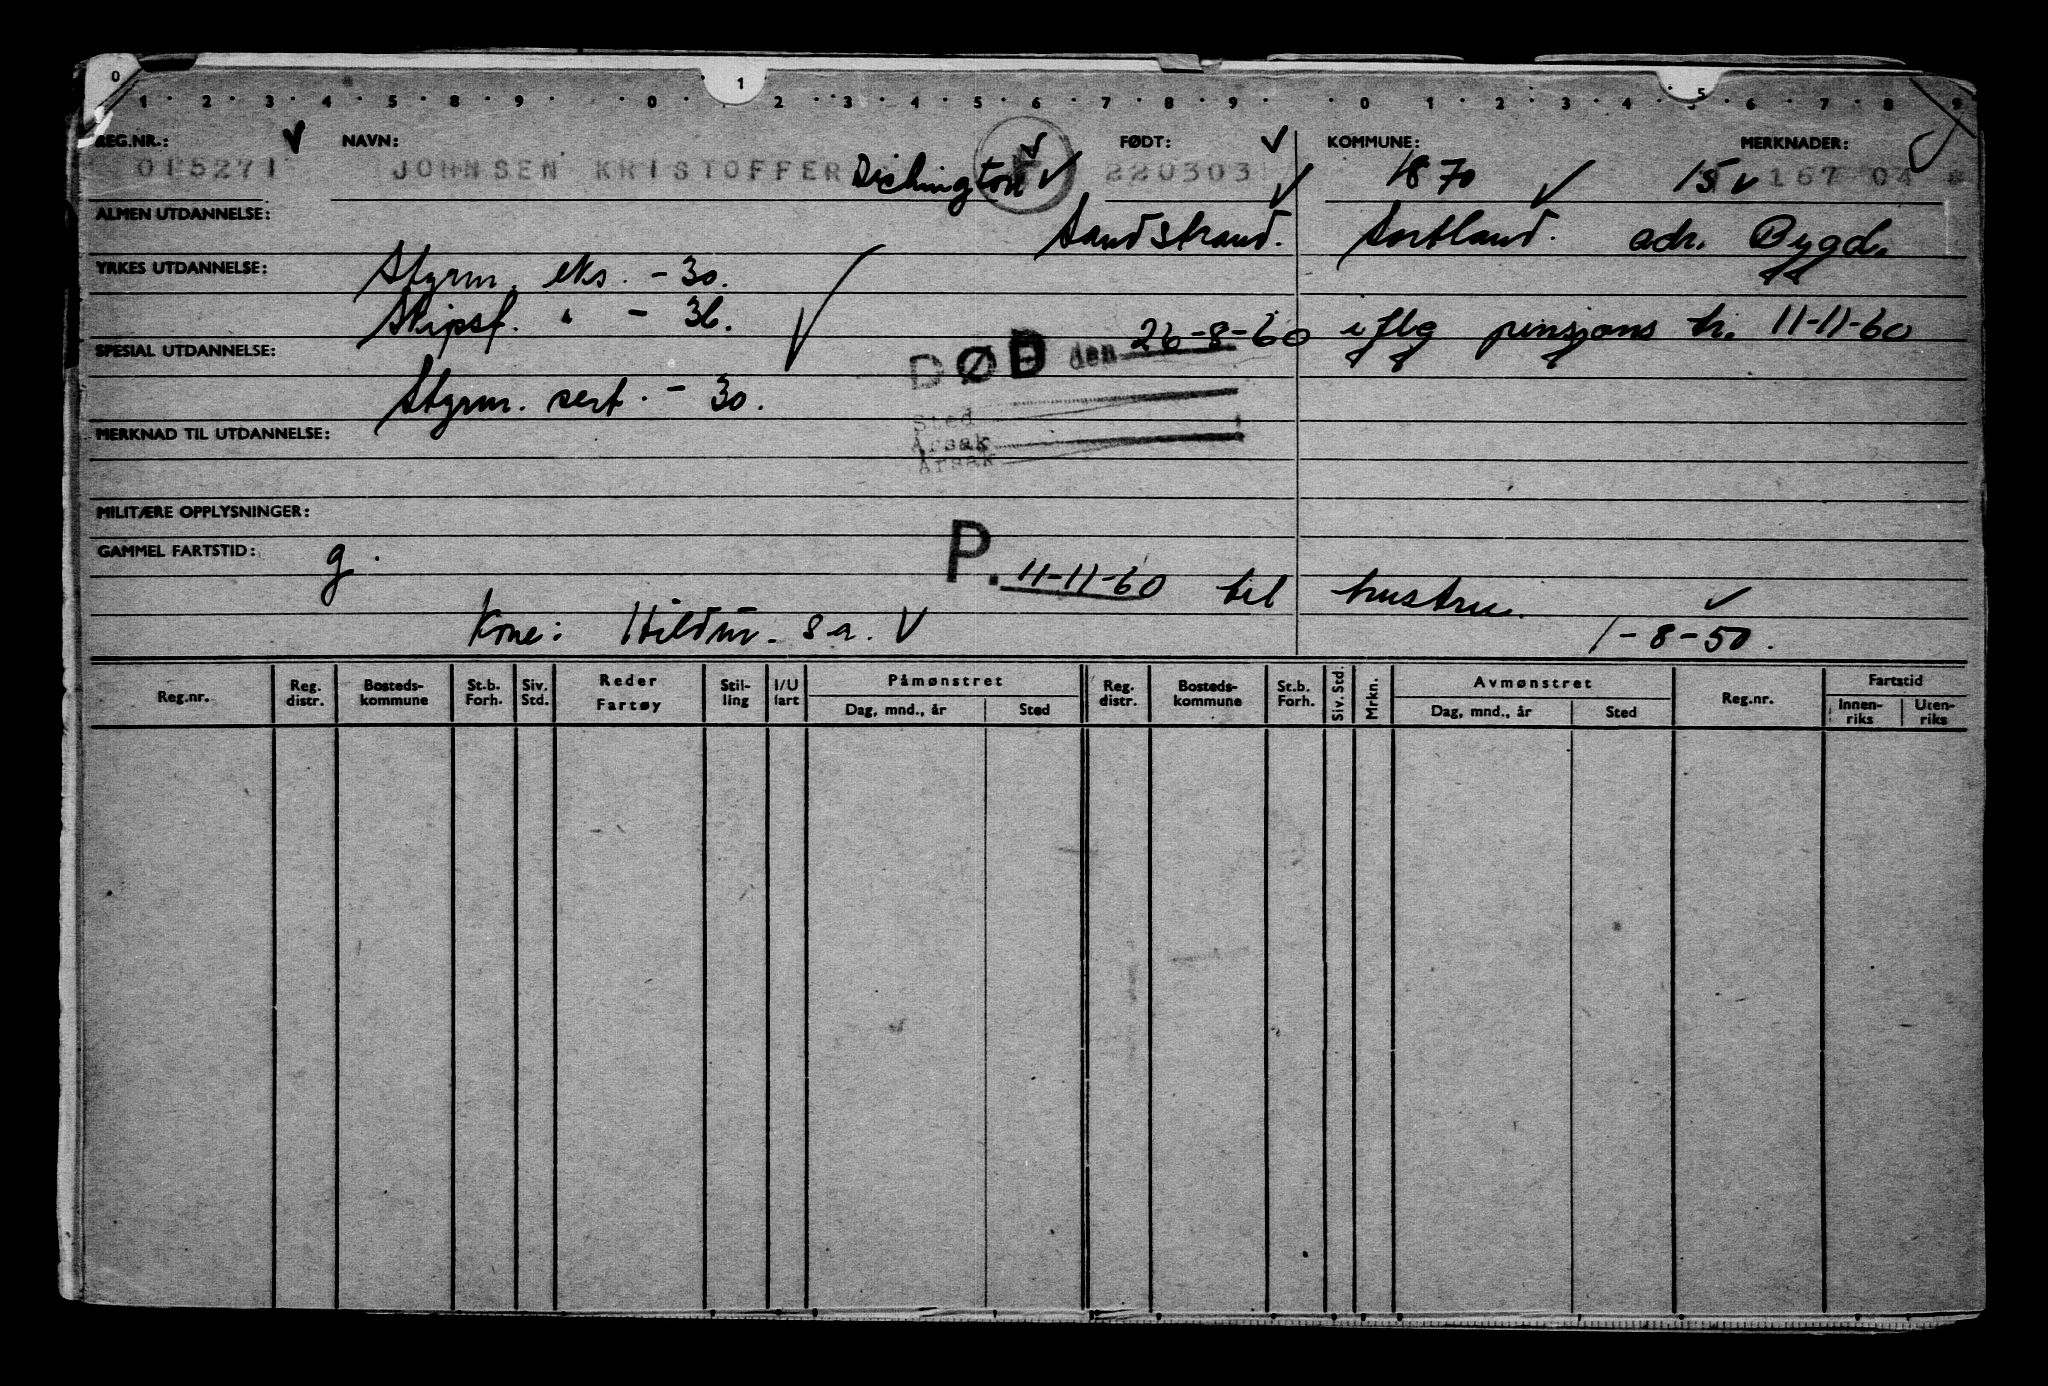 0 1 5
1 2 3 4 5 8 9 0 2 3 4 5 6 7 8 9 0 1 2 3 4 6 7 8 9
REG.NR.: NAVN: FØDT: KOMMUNE: MERKNADER:
015271 JOHNSEN KRISTOFFER 220303 1870 15 167 04
ALMEN UTDANNELSE:
Sandstrand. Sortland. adr. Bygd.
YRKES UTDANNELSE: Styrm. eks. - 30.
Skipsf. " - 36.
DØD den 26-8-60 iflg pensjons tr. 11-11-60
SPESIAL UTDANNELSE:
Styrm. sert. - 30.
Sted
MERKNAD TIL UTDANNELSE:
Årsak
Årsak
MILITÆRE OPPLYSNINGER:
GAMMEL FARTSTID: g.
P. 11-11-60 til hustru.
Kone: Hildur. s.a. 1-8-50.
Reg.nr. Reg. distr. Bosteds-kommune St.b. Forh. Siv. Std. Reder Fartøy Stil-ling I/U fart Påmønstret Dag, mnd., år Sted Reg. distr. Bosteds-kommune St.b. Forh. Siv. Std. Mrkn. Avmønstret Dag, mnd., år Sted Reg.nr. Fartstid Innen-riks Uten-riks